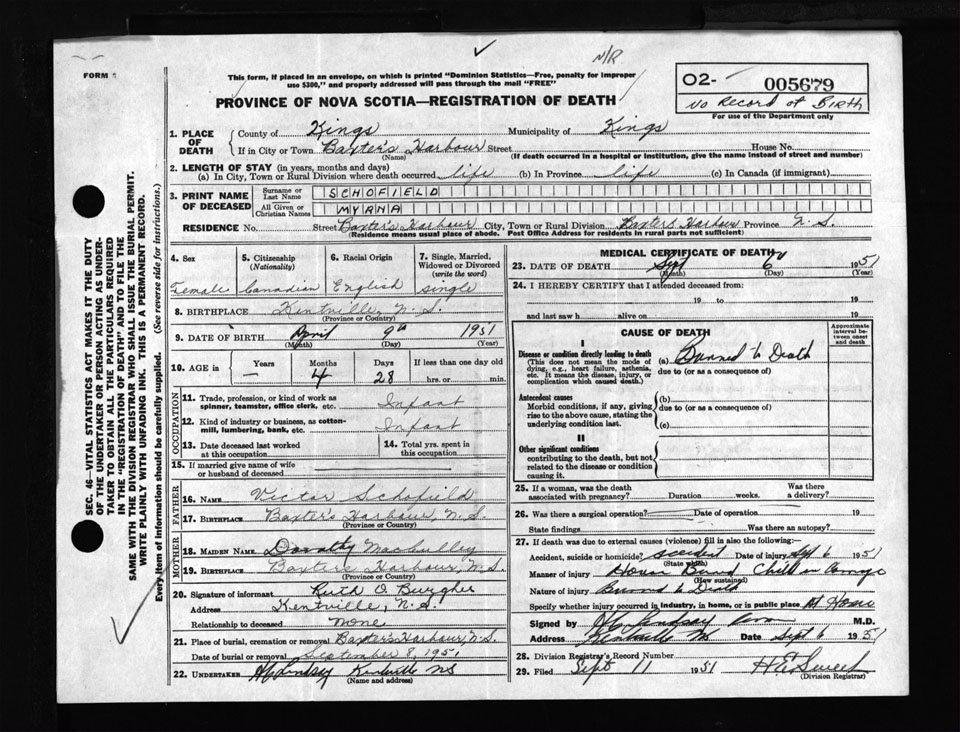 N/R
FORM
This form, if placed in an envelope, on which is printed "Dominion Statistics—Free, penalty for improper
use $300," and properly addressed will pass through the mail "FREE"
PROVINCE OF NOVA SCOTIA—REGISTRATION OF DEATH
O2-
005679
No Record of Birth
For use of the Department only
SEC. 46—VITAL STATISTICS ACT MAKES IT THE DUTY
OF THE UNDERTAKER OR PERSON ACTING AS UNDER-
TAKER TO OBTAIN ALL THE PARTICULARS REQUIRED
IN THE "REGISTRATION OF DEATH" AND TO FILE THE
SAME WITH THE DIVISION REGISTRAR WHO SHALL ISSUE THE BURIAL PERMIT.
WRITE PLAINLY WITH UNFADING INK. THIS IS A PERMANENT RECORD.
Every item of information should be carefully supplied. (See reverse side for instructions.)
1. PLACE OF DEATH County of Kings Municipality of Kings
If in City or Town Baxter's Harbour Street House No.
(Name) (If death occurred in a hospital or institution, give the name instead of street and number)
2. LENGTH OF STAY (in years, months and days)
(a) In City, Town or Rural Division where death occurred life (b) In Province life (c) In Canada (if immigrant)
3. PRINT NAME OF DECEASED Surname or Last Name SCHOFIELD
All Given or Christian Names MYRNA
RESIDENCE No. Street Baxter's Harbour City, Town or Rural Division Baxters Harbour Province N.S.
(Residence means usual place of abode. Post Office Address for residents in rural parts not sufficient)
4. Sex Female
5. Citizenship (Nationality) Canadian
6. Racial Origin English
7. Single, Married, Widowed or Divorced (write the word) Single
8. BIRTHPLACE Kentville, N.S.
(Province or Country)
9. DATE OF BIRTH April 9th 1951
(Month) (Day) (Year)
10. AGE in Years — Months 4 Days 28 If less than one day old hrs. or min.
OCCUPATION
11. Trade, profession, or kind of work as spinner, teamster, office clerk, etc. Infant
12. Kind of industry or business, as cotton-mill, lumbering, bank, etc. Infant
13. Date deceased last worked at this occupation
14. Total yrs. spent in this occupation
15. If married give name of wife or husband of deceased
FATHER
16. NAME Victor Schofield
17. BIRTHPLACE Baxter's Harbour, N.S.
(Province or Country)
MOTHER
18. MAIDEN NAME Dorothy
19. BIRTHPLACE Baxters Harbour, N.S.
(Province or Country)
20. Signature of informant Ruth O. Burgher
Address Kentville, N.S.
Relationship to deceased None
21. Place of burial, cremation or removal Baxter's Harbour, N.S.
Date of burial or removal September 8, 1951
22. UNDERTAKER Lindsay Kentville NS
(Name and address)
MEDICAL CERTIFICATE OF DEATH
23. DATE OF DEATH Sept 6 1951
(Month) (Day) (Year)
24. I HEREBY CERTIFY that I attended deceased from:
19 to 19
and last saw h alive on 19
CAUSE OF DEATH
Approximate interval between onset and death
I
Disease or condition directly leading to death
(This does not mean the mode of dying, e.g., heart failure, asthenia, etc. It means the disease, injury, or complication which caused death.)
(a) Burned to Death
due to (or as a consequence of)
Antecedent causes
Morbid conditions, if any, giving rise to the above cause, stating the underlying condition last.
(b)
due to (or as a consequence of)
(c)
II
Other significant conditions
contributing to the death, but not related to the disease or condition causing it.
25. If a woman, was the death associated with pregnancy? Duration weeks. Was there a delivery?
26. Was there a surgical operation? Date of operation 19
State findings Was there an autopsy?
27. If death was due to external causes (violence) fill in also the following:
Accident, suicide or homicide? accident Date of injury Sept 6 1951
(State which)
Manner of injury House Burned Child in
(How sustained)
Nature of injury Burned to Death
Specify whether injury occurred in industry, in home, or in public place At Home
Signed by Lindsay M.D.
Address Kentville NS Date Sept 6 1951
28. Division Registrar's Record Number
29. Filed Sept 11 1951
(Division Registrar)